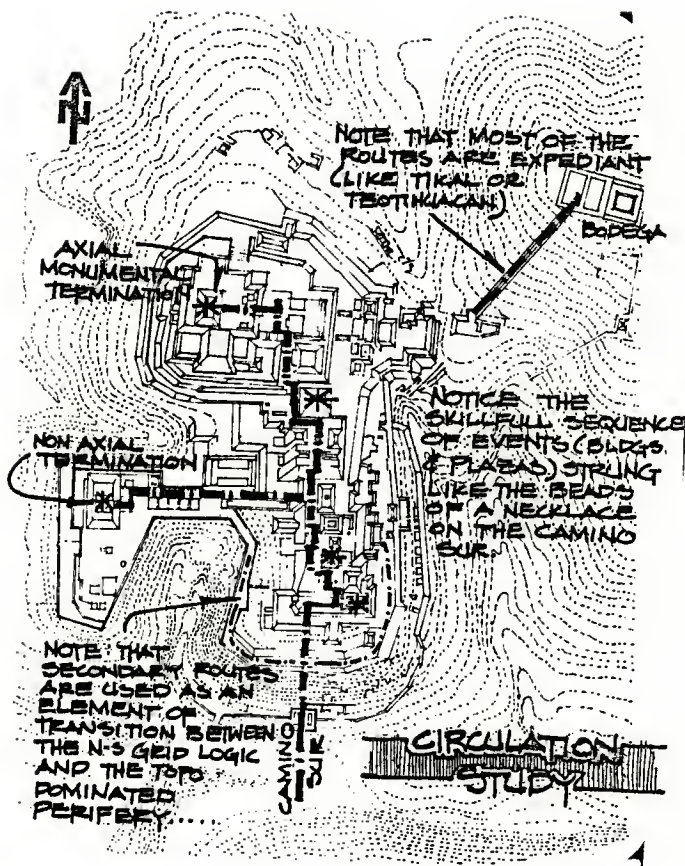 N
NOTE THAT MOST OF THE
ROUTES ARE EXPEDIANT
(LIKE TIKAL OR
TEOTIHUACAN)
BODEGA
AXIAL
MONUMENTAL
TERMINATION
NOTICE THE
SKILLFULL SEQUENCE
OF EVENTS (BLDGS.
& PLAZAS) STRUNG
LIKE THE BEADS
OF A NECKLACE
ON THE CAMINO
SUR.
NON AXIAL
TERMINATION
NOTE THAT
SECONDARY ROUTES
ARE USED AS AN
ELEMENT OF
TRANSITION BETWEEN
THE N-S GRID LOGIC
AND THE TOPO
DOMINATED
PERIFERY.....
CAMINO
SUR
CIRCULATION
STUDY